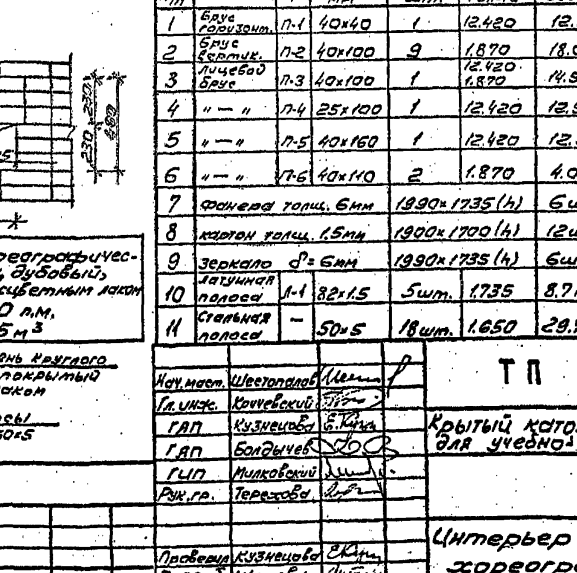 1 Брус горизонт. П-1 40×40 1 12.420 12.
2 Брус вертик. П-2 40×100 9 1.870
3 Лицевой брус П-3 40×100 1 12.420 1.870
4 " — " П-4 25×100 1 12.420
5 " — " П-5 40×160 1 12.420 12.
6 " — " П-6 40×110 2 1.870 4.0
7 фанера толщ. 6мм 1990×1735(h) 6ш
8 картон толщ. 1,5мм 1900×1700(h) 12ш
9 зеркало δ=6мм 1990×1735(h) 6ш
10 Латунная полоса Л-1 82×1.5 5шт. 1.735 8.7
11 Стальная полоса — 50×5 18шт. 1.650 29.
230 230
460
реографичес-
ь дубовый,
сцветным лаком
0 п.м.
5 м³
ань круглого
покрытый
лаком
осы
50×5
Нач.маст. Шестопалов
Гл.инж. Кочуевский
ГАП Кузнецова
ГАП Болдычев
ГИП Милковский
Рук.гр. Терехова
Проверил Кузнецова
ТП
Крытый като
для учебно-
Интерьер
хореогра